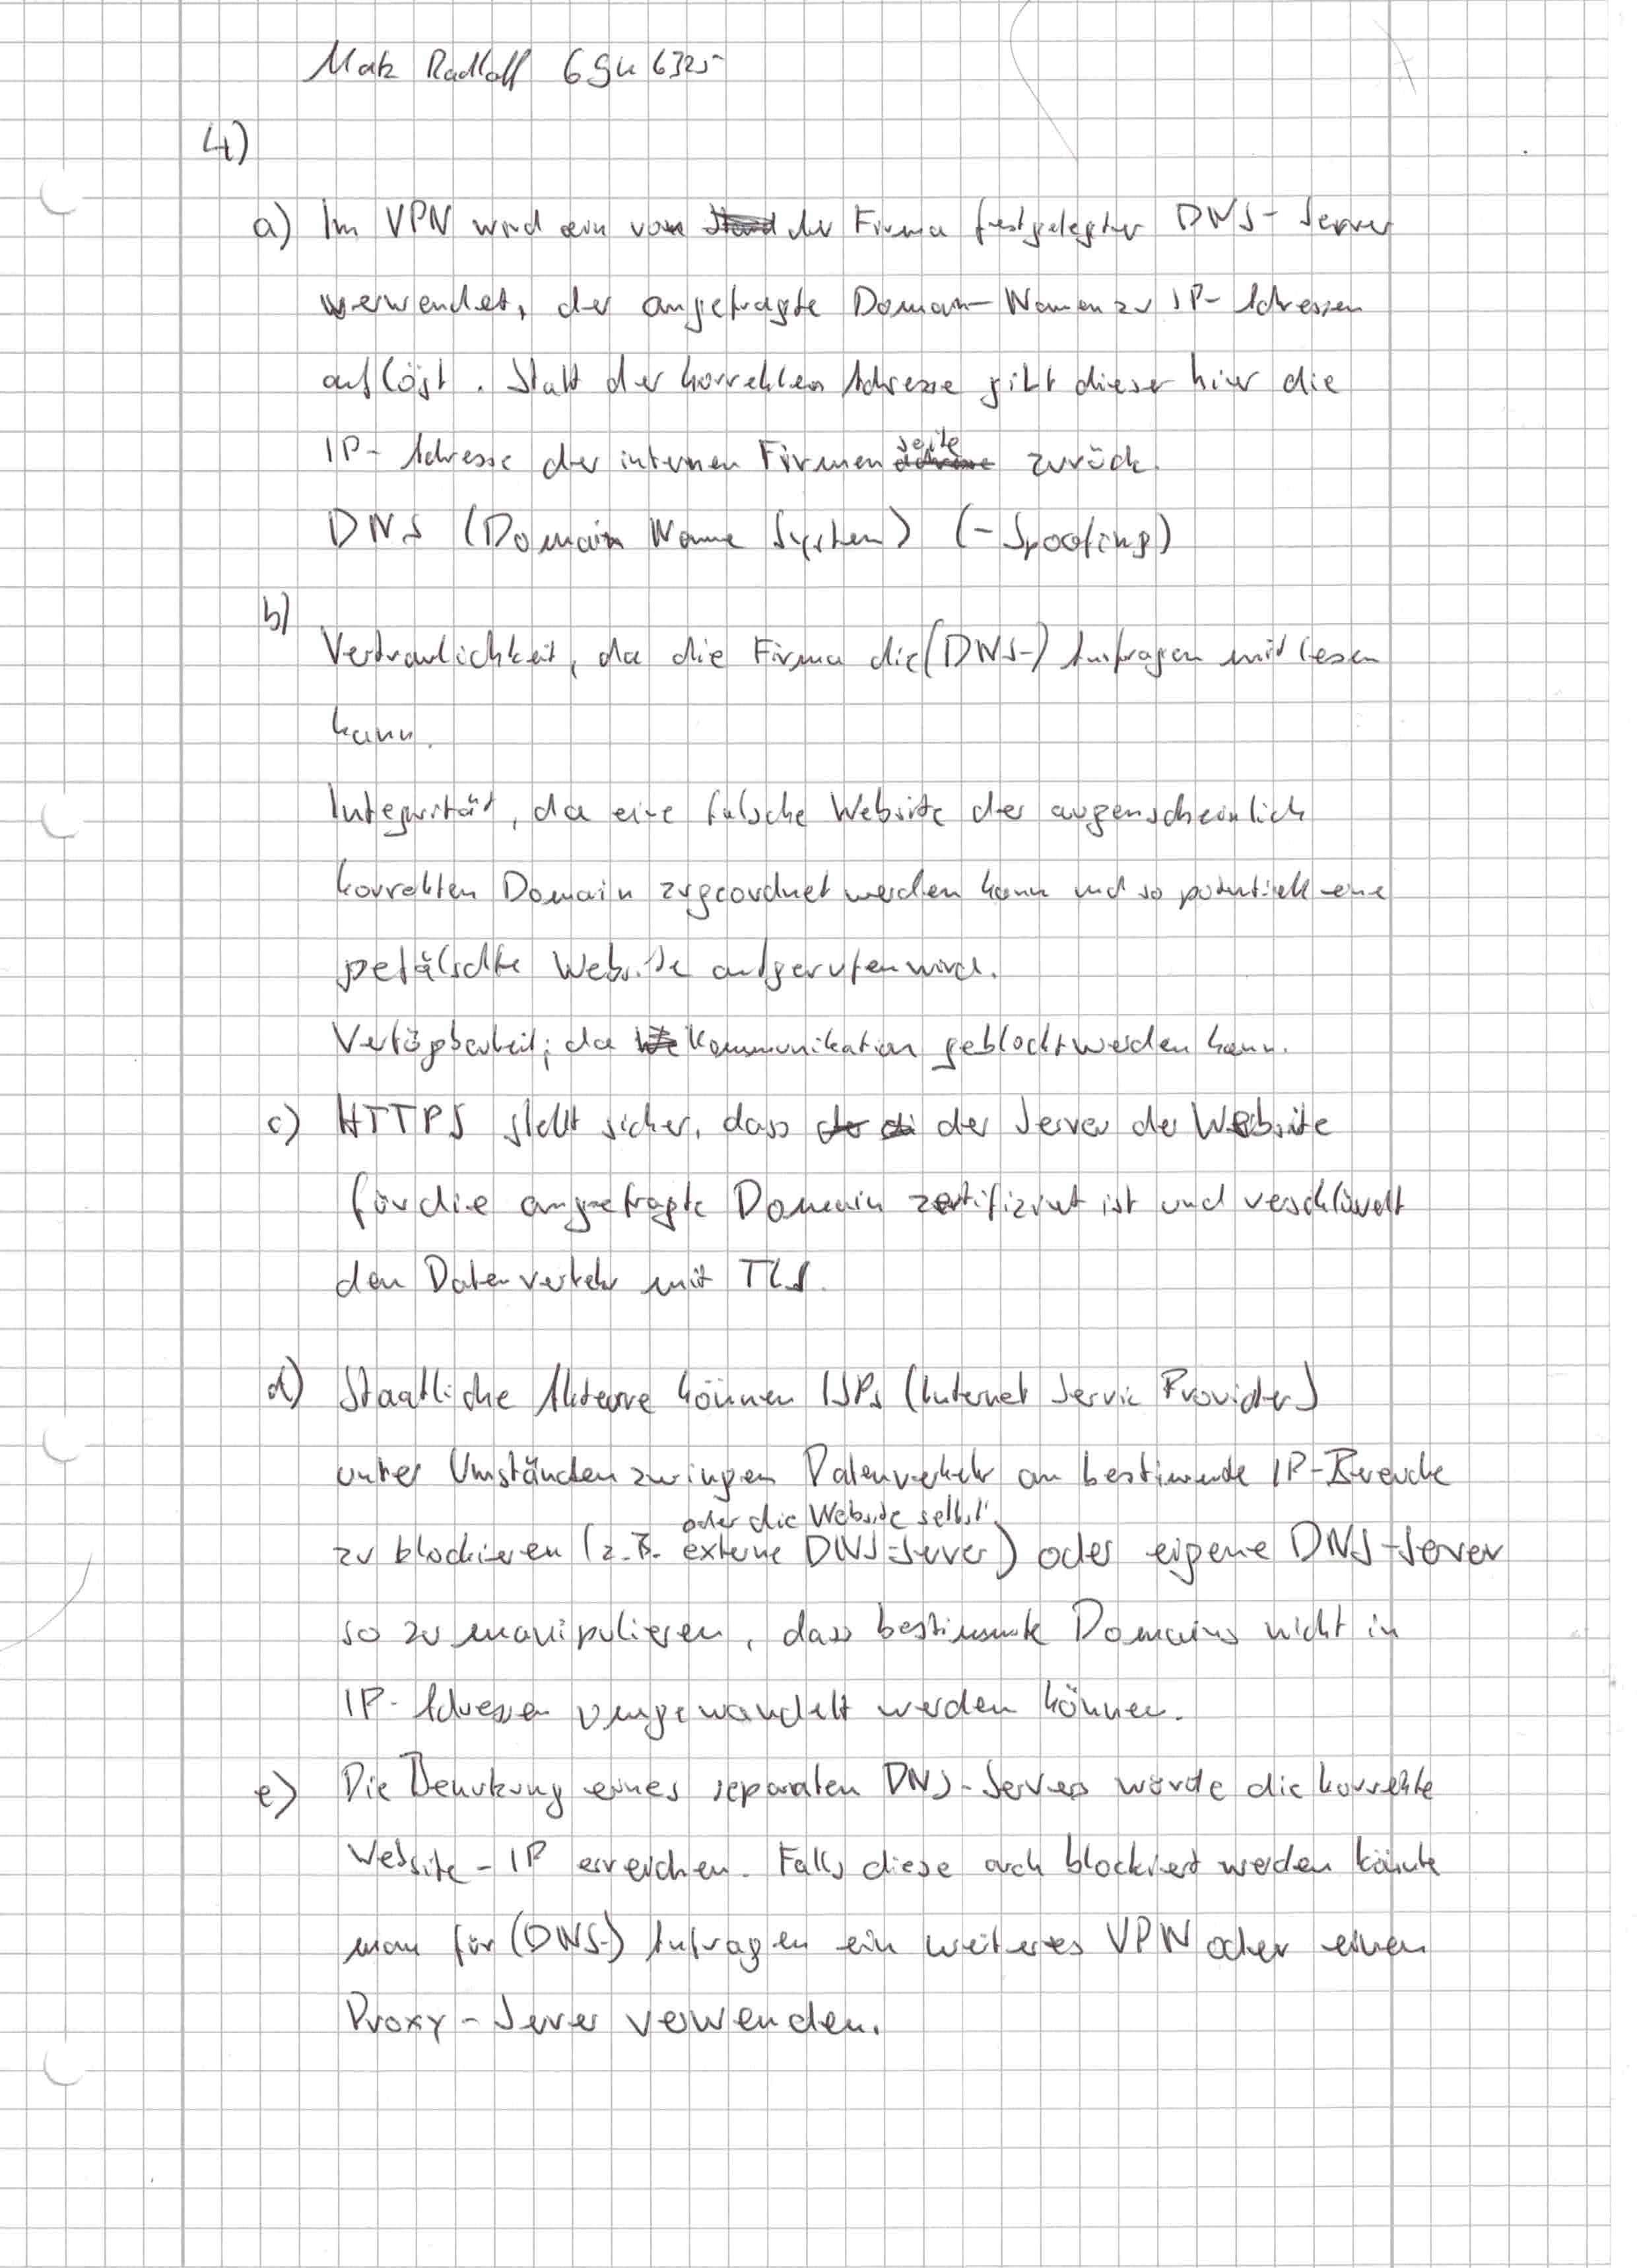 Matz Radloff 6946325
4)
a) Im VPN wird ein von der Firma festgelegter DNS-Server
verwendet, der angefragte Domain-Namen zu IP-Adressen
auflöst. Statt der korrekten Adresse gibt dieser hier die
IP-Adresse der internen Firmenseite zurück.
DNS (Domain Name System) (-Spoofing)
b)
Vertraulichkeit, da die Firma die (DNS-) Anfragen mitlesen
kann.
Integrität, da eine falsche Website der augenscheinlich
korrekten Domain zugeordnet werden kann und so potentiell eine
gefälschte Website aufgerufen wird.
Verfügbarkeit, da Kommunikation geblockt werden kann.
c) HTTPS stellt sicher, dass der Server der Website
für die angefragte Domain zertifiziert ist und verschlüsselt
den Datenverkehr mit TLS.
d) Staatliche Akteure können ISPs (Internet Service Provider)
unter Umständen zwingen Datenverkehr an bestimmte IP-Bereiche
oder die Website selbst
zu blockieren (z.B. externe DNS-Server) oder eigene DNS-Server
so zu manipulieren, dass bestimmte Domains nicht in
IP-Adressen umgewandelt werden können.
e) Die Benutzung eines separaten DNS-Servers würde die korrekte
Website-IP erreichen. Falls diese auch blockiert werden könnte
man für (DNS-) Anfragen ein weiteres VPN oder einen
Proxy-Server verwenden.